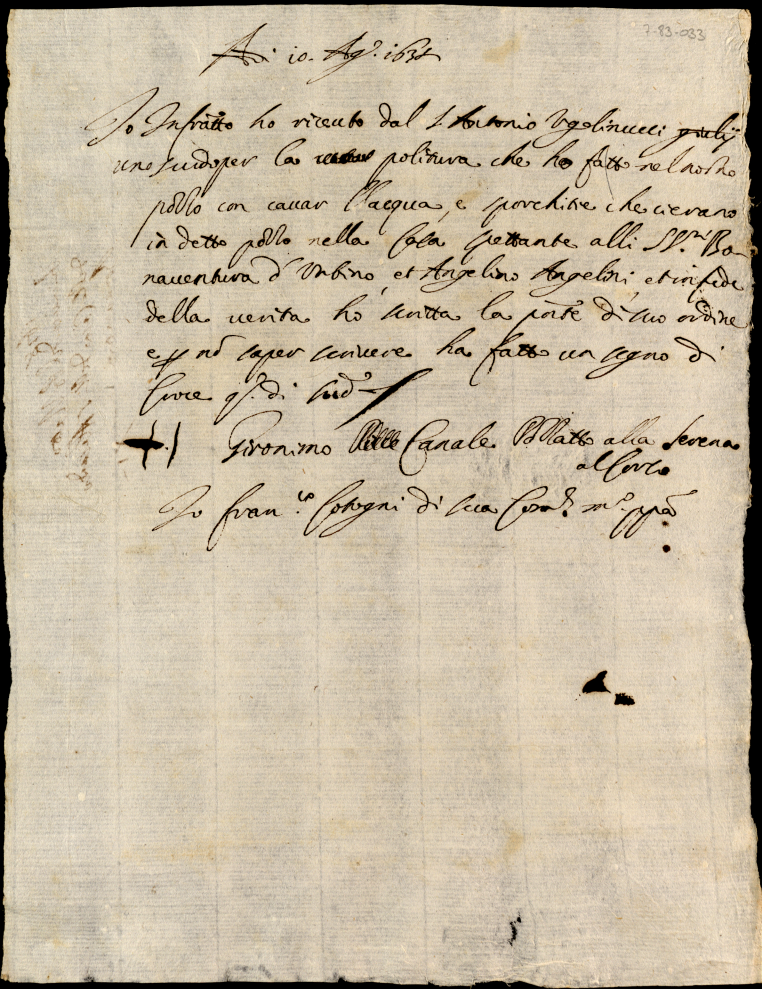 7-83-033
Adi 10. Ag.º 1631
Io Infratto ho riceuto dal S. Antonio Vgolinucci giulij
uno scudo per la politura che ho fatto nel nostro
pozzo con cauar l'acqua, e sporchitie che cierano
in detto pozzo nella Casa spettante alli SS.ri Bo-
nauentura d'Vrbino, et Angelino Angelini, et in fede
della uerita ho scritta la pnte di suo ordine
e p nõ saper scriuere ha fatto un segno di
Croce q.º di sud.º
+ Gironimo Canale Pozzatto alla Serena
al Corso
Io Fran.co Cotogni di sua m.º ppa